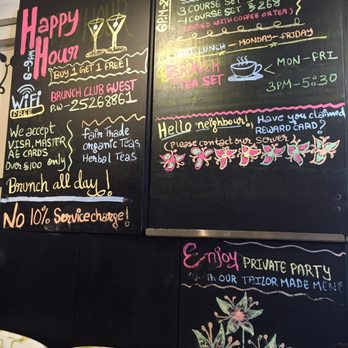 Happy
Hour
6-9PM
BUY 1 GET 1 FREE!
WiFi
FREE
BRUNCH CLUB GUEST
P.W-25268861
We accept
VISA, MASTER
AE CARDS
Over $100 only
Fair Trade
Organic Teas
Herbal Teas
Brunch all day!
NO 10% Service charge!
6PM-
3 COURSE SET
4 COURSE SET $268
SERVED WITH COFFEE OR TEA)
LUNCH - MONDAY-FRIDAY
TEA SET
MON-FRI
3PM-5:30
Hello neighbour!, Have you claimed
REWARD CARD?
(Please contact our server)
Enjoy PRIVATE PARTY
OUR TAILOR MADE MENU